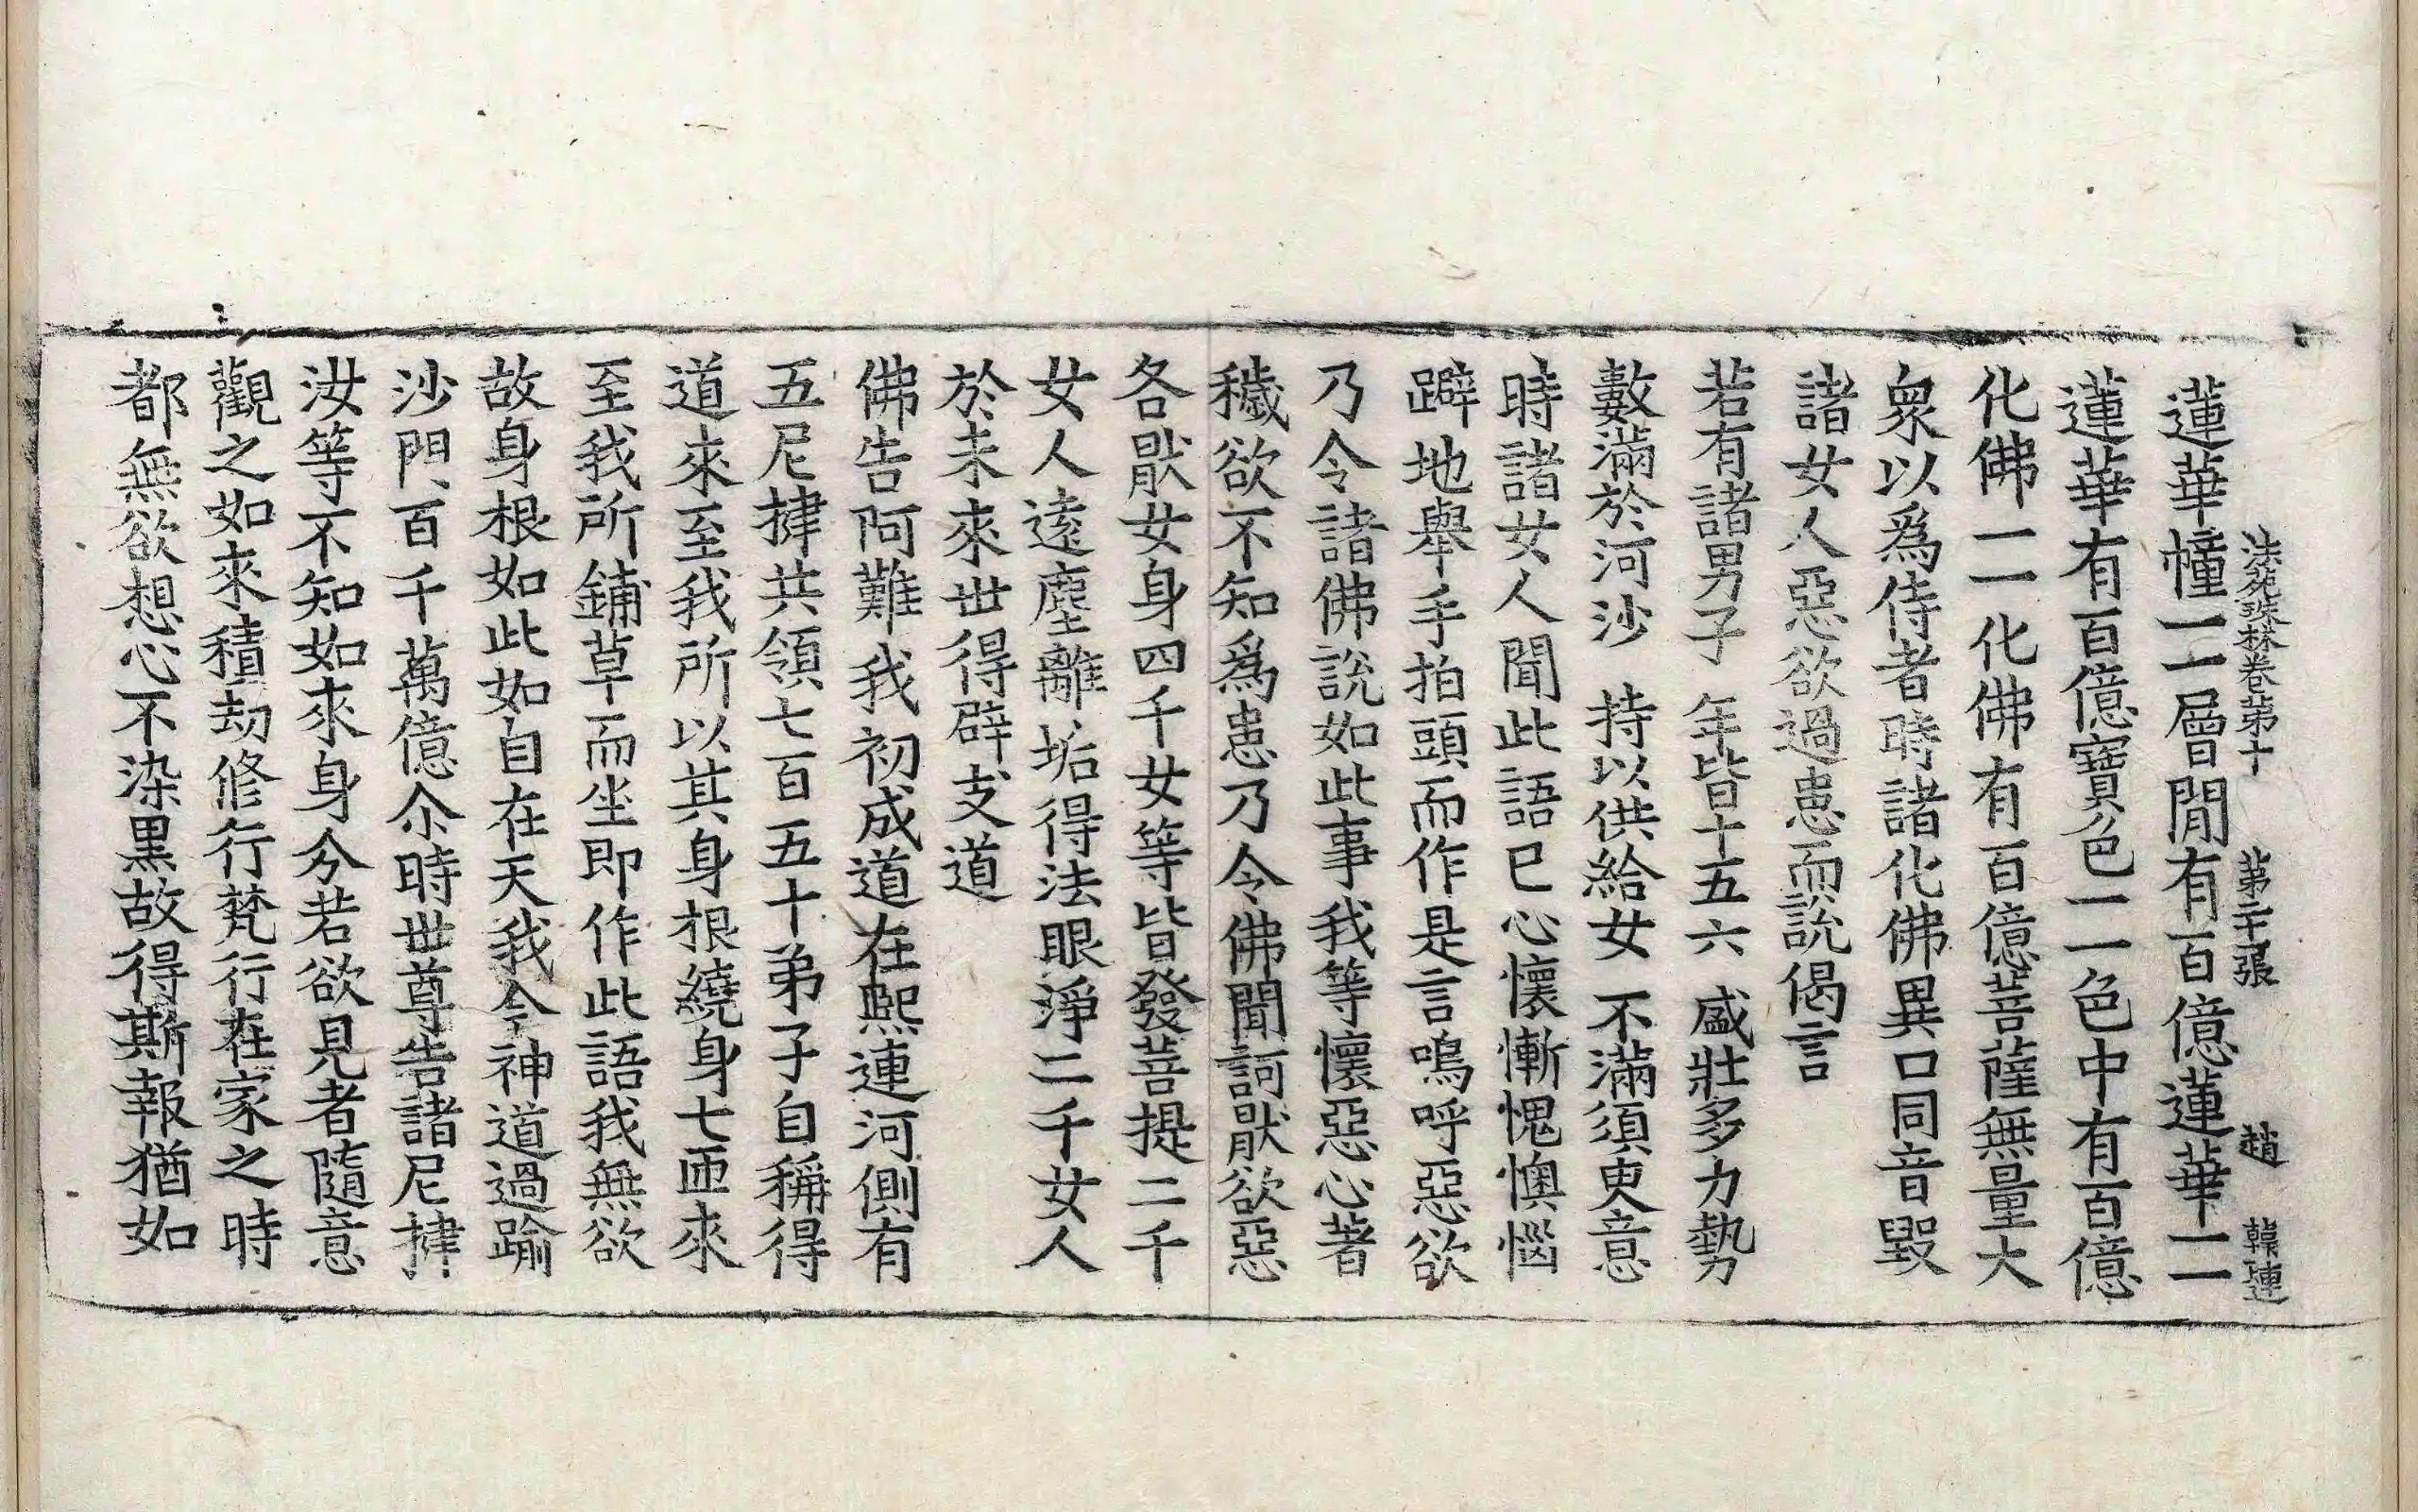 法苑珠林卷第十 第二十張 趙 韓璉
蓮華幢一一層閒有百億蓮華一一
蓮華有百億寶色一一色中有百億
化佛一一化佛有百億菩薩無量大
衆以爲侍者時諸化佛異口同音毀
諸女人惡欲過患而說偈言
若有諸男子 年皆十五六 盛壯多力勢
數滿於河沙 持以供給女 不滿須臾意
時諸女人聞此語已心懷慚愧懊惱
躃地舉手拍頭而作是言嗚呼惡欲
乃令諸佛說如此事我等懷惡心著
穢欲不知爲患乃令佛聞訶猒欲惡
各猒女身四千女等皆發菩提二千
女人遠塵離垢得法眼淨二千女人
於未來世得辟支道
佛告阿難我初成道在熙連河側有
五尼揵共領七百五十弟子自稱得
道來至我所以其身根繞身七匝來
至我所鋪草而坐即作此語我無欲
故身根如此如自在天我今神道過踰
沙門百千萬億尒時世尊告諸尼揵
汝等不知如來身分若欲見者隨意
觀之如來積劫修行梵行在家之時
都無欲想心不染黑故得斯報猶如